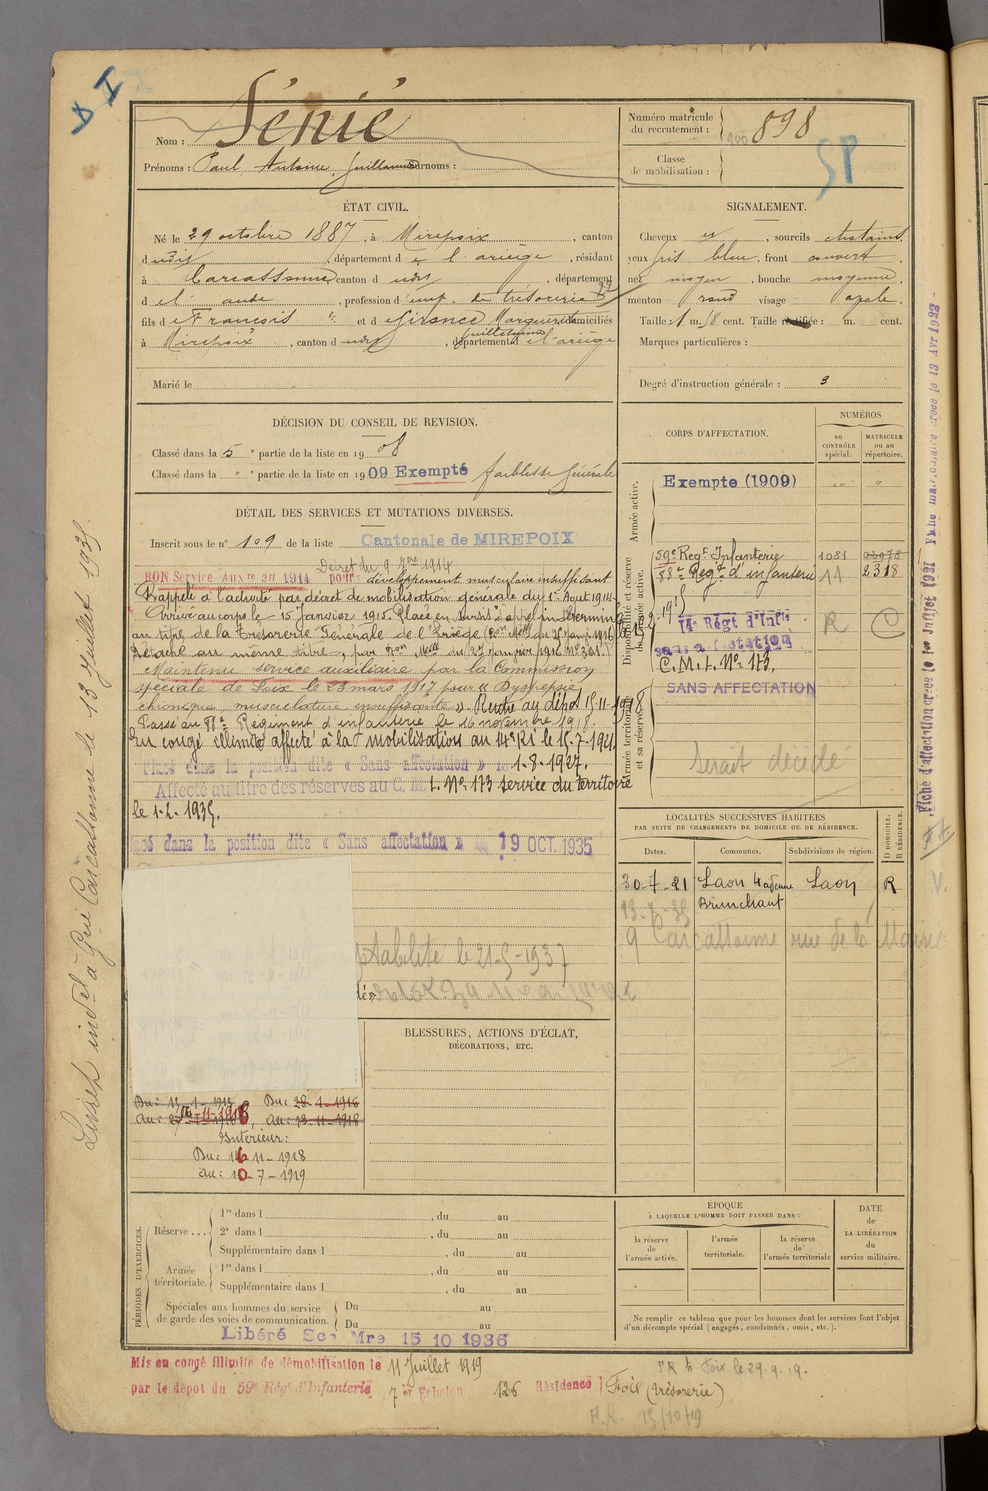 Nom : Sénié
Prénoms : Paul Antoine, Guillaume Surnoms :
Numéro matricule du recrutement : 898
Classe de mobilisation :
SP
ÉTAT CIVIL.
Né le 29 octobre 1887, à Mirepoix, canton
dudit, département de l'ariège, résidant
à Carcassonne canton dudit, département
de l'aude, profession d'emp. de trésorerie
fils de François et de Girance Marguerite domiciliés
Guillaumine
à Mirepoix, canton dudit, département de l'ariège
Marié le
SIGNALEMENT.
Cheveux et, sourcils chatains,
yeux gris bleu, front couvert,
nez moyen, bouche moyenne,
menton rond visage ovale.
Taille : 1 m. 8 cent. Taille rectifiée : m. cent.
Marques particulières :
Degré d'instruction générale : 3
DÉCISION DU CONSEIL DE REVISION.
Classé dans la 5e partie de la liste en 1908
Classé dans la " e partie de la liste en 1909 Exempté faiblesse générale
CORPS D'AFFECTATION.
NUMÉROS
au CONTRÔLE spécial.
MATRICULE ou au répertoire.
Armée active.
Exempté (1909)
Disponibilité et réserve de l'armée active.
59e Regt Infanterie 1081
88e Regt d'infanterie 11 2318
14e Régt d'Inf ie R C
sans affectation
C.M.I. No 173.
Armée territoriale et sa réserve.
SANS AFFECTATION
Serait décédé
DÉTAIL DES SERVICES ET MUTATIONS DIVERSES.
Inscrit sous le no 109 de la liste Cantonale de MIREPOIX
Décret du 9 7bre 1914
BON Service Auxre en 1914 pour développement musculaire insuffisant
Rappelé à l'activité par décret de mobilisation générale du 1er Aout 1914.
Arrivé au corps le 15 Janvier 1915. Placé en sursis d'appel indéterminé
au titre de la Trésorerie Générale de l'Ariège
Détaché au même titre, par Don Mlle du 27 janvier 1916 No 301.
Maintenu service auxiliaire par la Commission
spéciale de Foix le 28 mars 1917 pour « Dyspepsie
chronique, musculature insuffisante ». Rentré au dépôt 15-11-1918
Passé au 88e Régiment d'infanterie le 16 novembre 1918.
En congé illimité affecté à la mobilisation au 14e RI le 15-7-1921
Placé dans la position dite « Sans affectation » le 1-8-1927.
Affecté au titre des réserves au C.M.I. No 173 service du territoire
le 1-2-1935.
Placé dans la position dite « Sans affectation » le 19 OCT. 1935
le 21-5-1937
LOCALITÉS SUCCESSIVES HABITÉES
PAR SUITE DE CHANGEMENTS DE DOMICILE OU DE RÉSIDENCE.
Dates. Communes. Subdivisions de région. D DOMICILE. R RÉSIDENCE.
30-7-21 Laon 4 avenue Laon R
Brunehaut
13-7-35
9 Carcassonne rue de la Mairie
BLESSURES, ACTIONS D'ÉCLAT,
DÉCORATIONS, ETC.
Du : 15-1-1915 Du : 28-1-1916
Au : 27-1-1916 Au : 13-11-1918
Intérieur :
Du : 16-11-1918
au : 10-7-1919
PÉRIODES D'EXERCICES.
Réserve . . .
1re dans l , du au
2e dans l , du au
Supplémentaire dans l , du au
Armée territoriale.
1re dans l , du au
Supplémentaire dans l , du au
Spéciales aux hommes du service
de garde des voies de communication.
Du au
Du au
Libéré Ser Mre 15 10 1936
ÉPOQUE
À LAQUELLE L'HOMME DOIT PASSER DANS :
la réserve de l'armée active.
l'armée territoriale.
la réserve de l'armée territoriale
DATE de LA LIBÉRATION du service militaire.
Ne remplir ce tableau que pour les hommes dont les services font l'objet
d'un décompte spécial (engagés, condamnés, omis, etc.).
Mis en congé illimité de démobilisation le 11 Juillet 1919
par le dépôt du 59e Régt d'Infanterie 7e Echelon 126 Résidence Foix (trésorerie)
PR à Foix le 29.9.19.
15/10/19